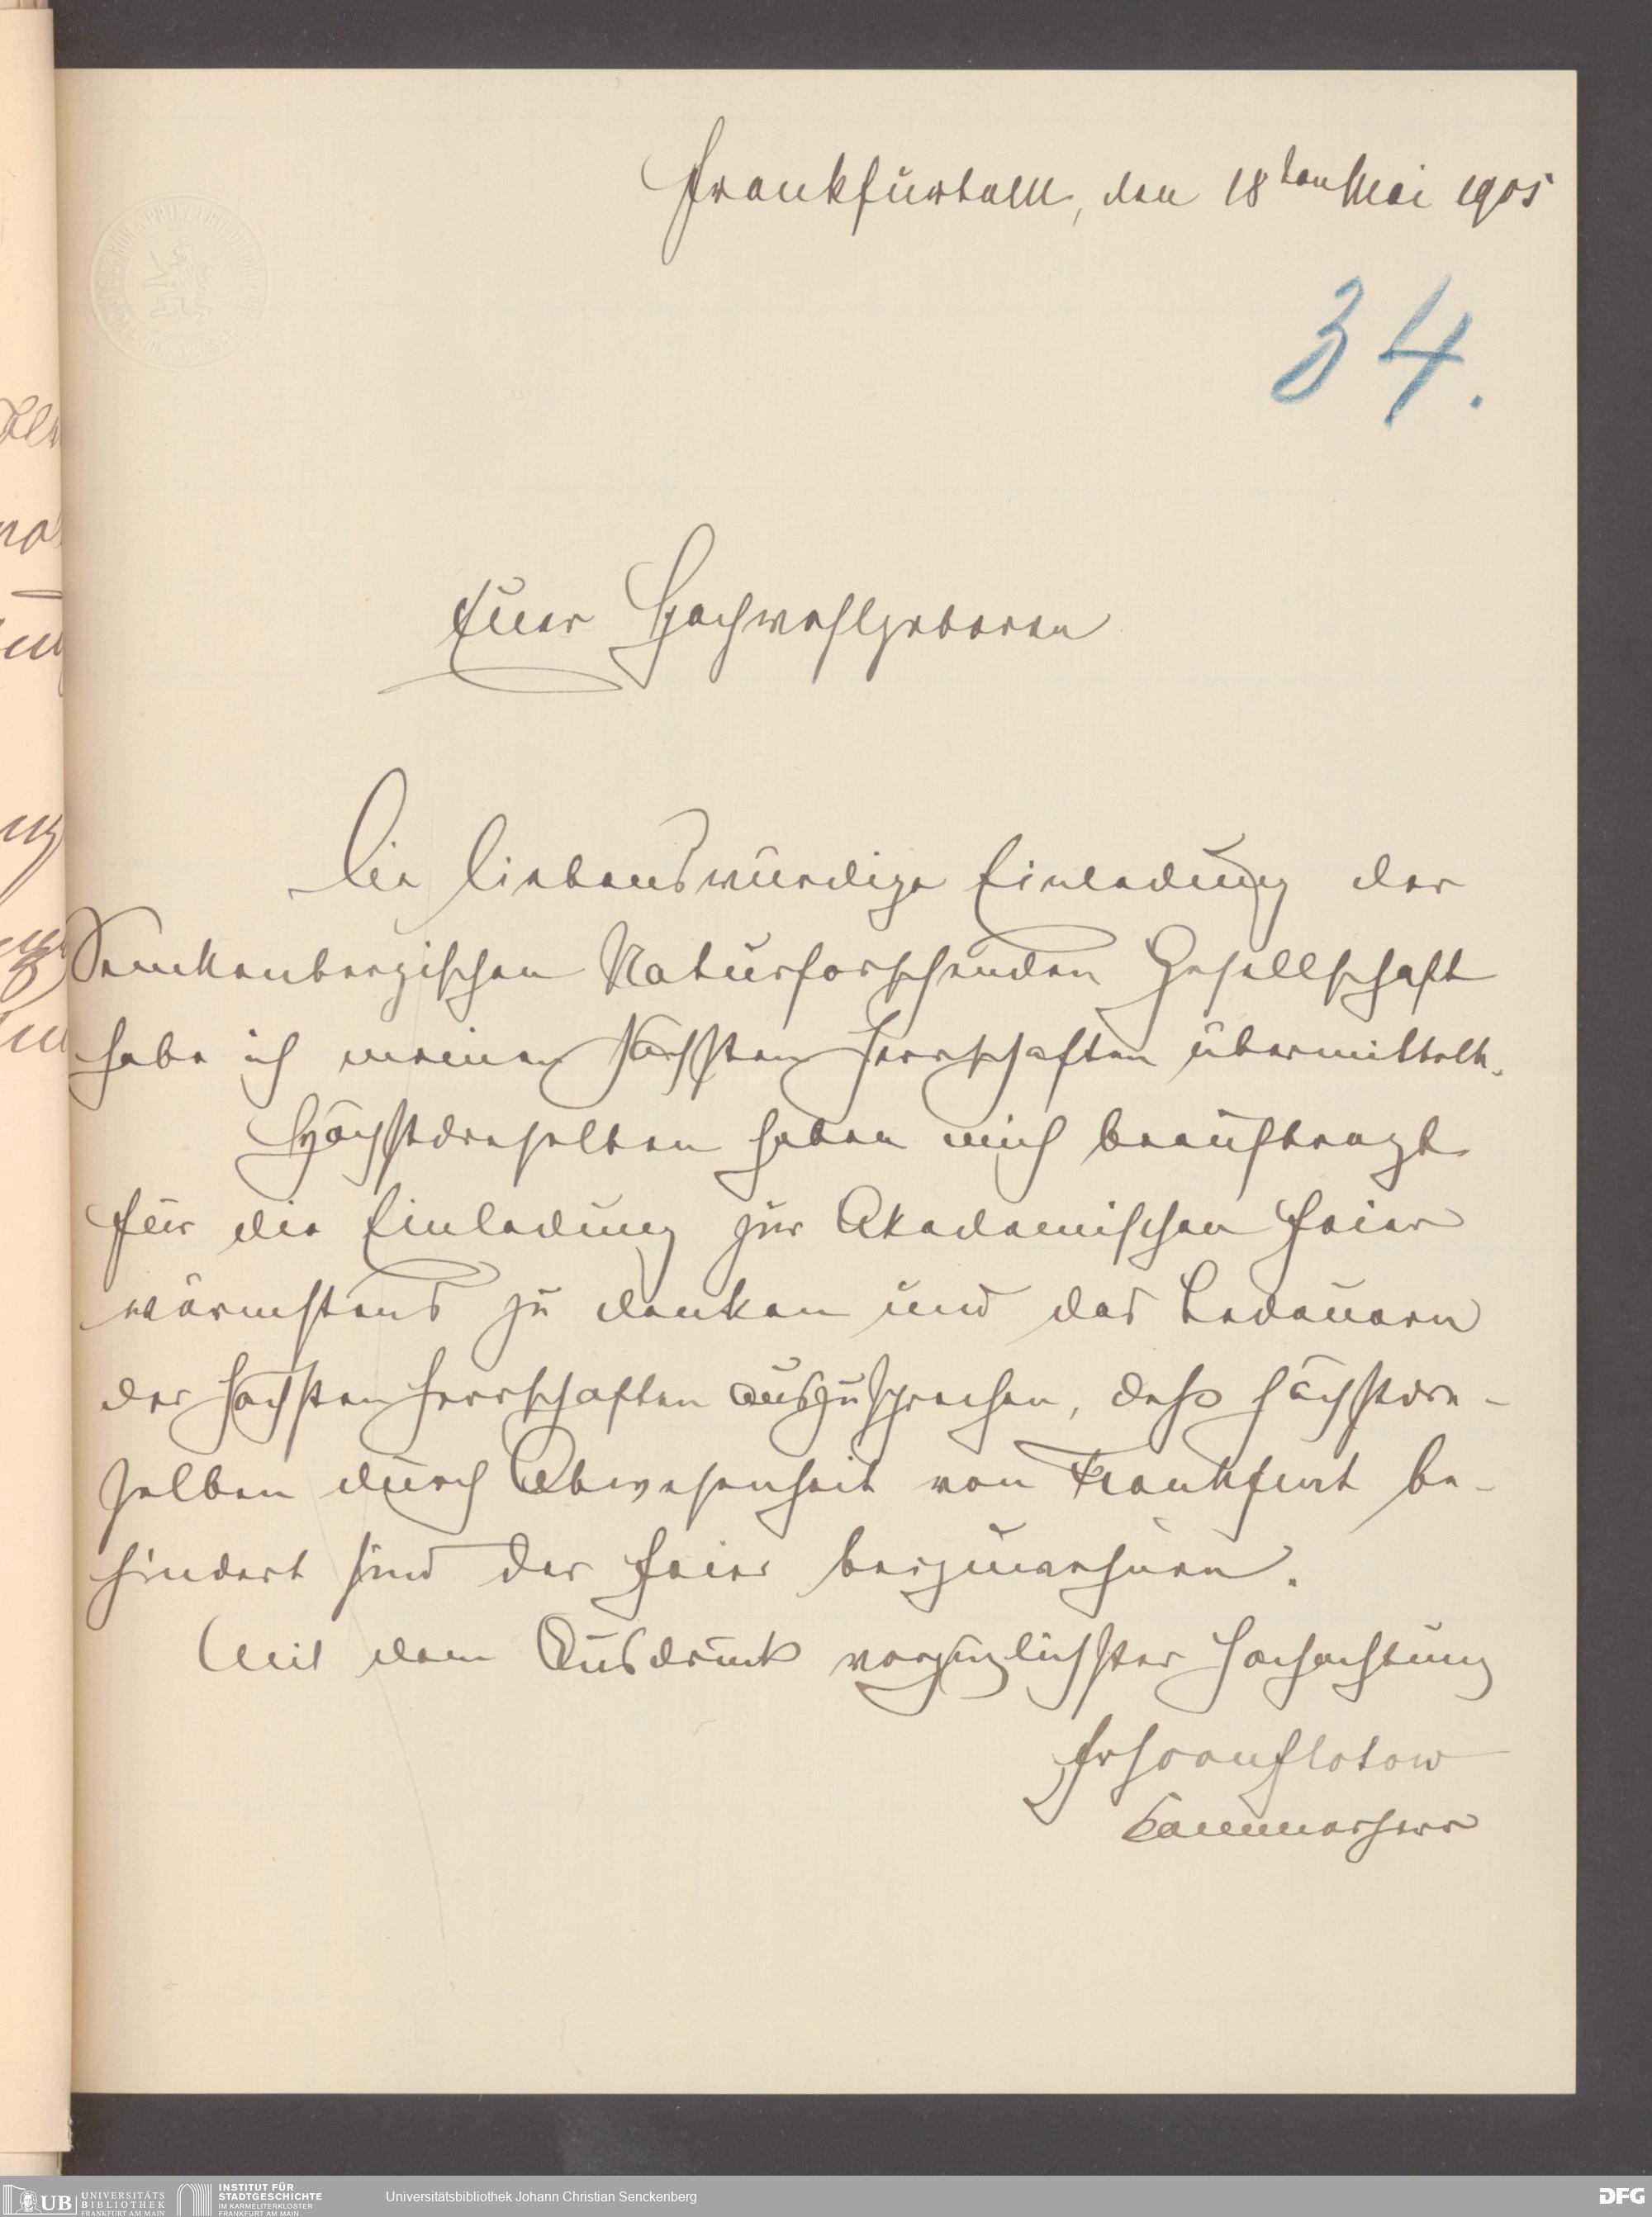 Frankfurt a/M, den 18ten Mai 1905
34.
Euer Hochwohlgeboren
Die liebenswürdige Einladung der
Senckenbergischen Naturforschenden Gesellschaft
habe ich meinen höchsten Herrschaften übermittelt.
Höchstdieselben haben mich beauftragt
für die Einladung zur Akademischen Feier
wärmstens zu danken und das Bedauern
der höchsten Herrschaften auszusprechen, daß höchstdie-
selben durch Abwesenheit von Frankfurt be-
hindert sind der Feier beizuwohnen.
Mit dem Ausdruck vorzüglichster Hochachtung
Frh von Flotow
Kammerherr
UB
UNIVERSITÄTS
BIBLIOTHEK
FRANKFURT AM MAIN
INSTITUT FÜR
STADTGESCHICHTE
IM KARMELITERKLOSTER
FRANKFURT AM MAIN
Universitätsbibliothek Johann Christian Senckenberg
DFG